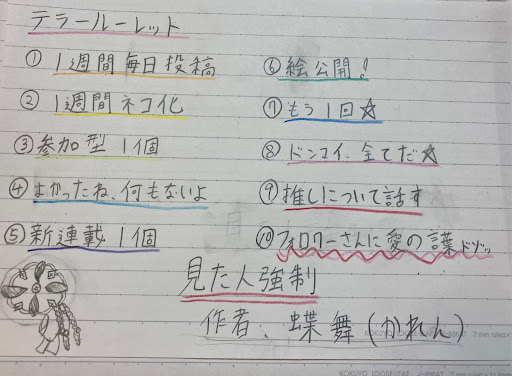 テラールーレット
① 1週間毎日投稿
② 1週間ネコ化
③参加型 1個
④よかったね、何もないよ
⑤新連載 1個
⑥絵公開!
⑦もう1回☆
⑧ドンコイ、全てだ☆
⑨推しについて話す
⑩フォロワーさんに愛の言葉ドゾッ
見た人強制
作者、蝶舞(かれん)
KOKUYO LOOSE-LEAF
7 mm ruled